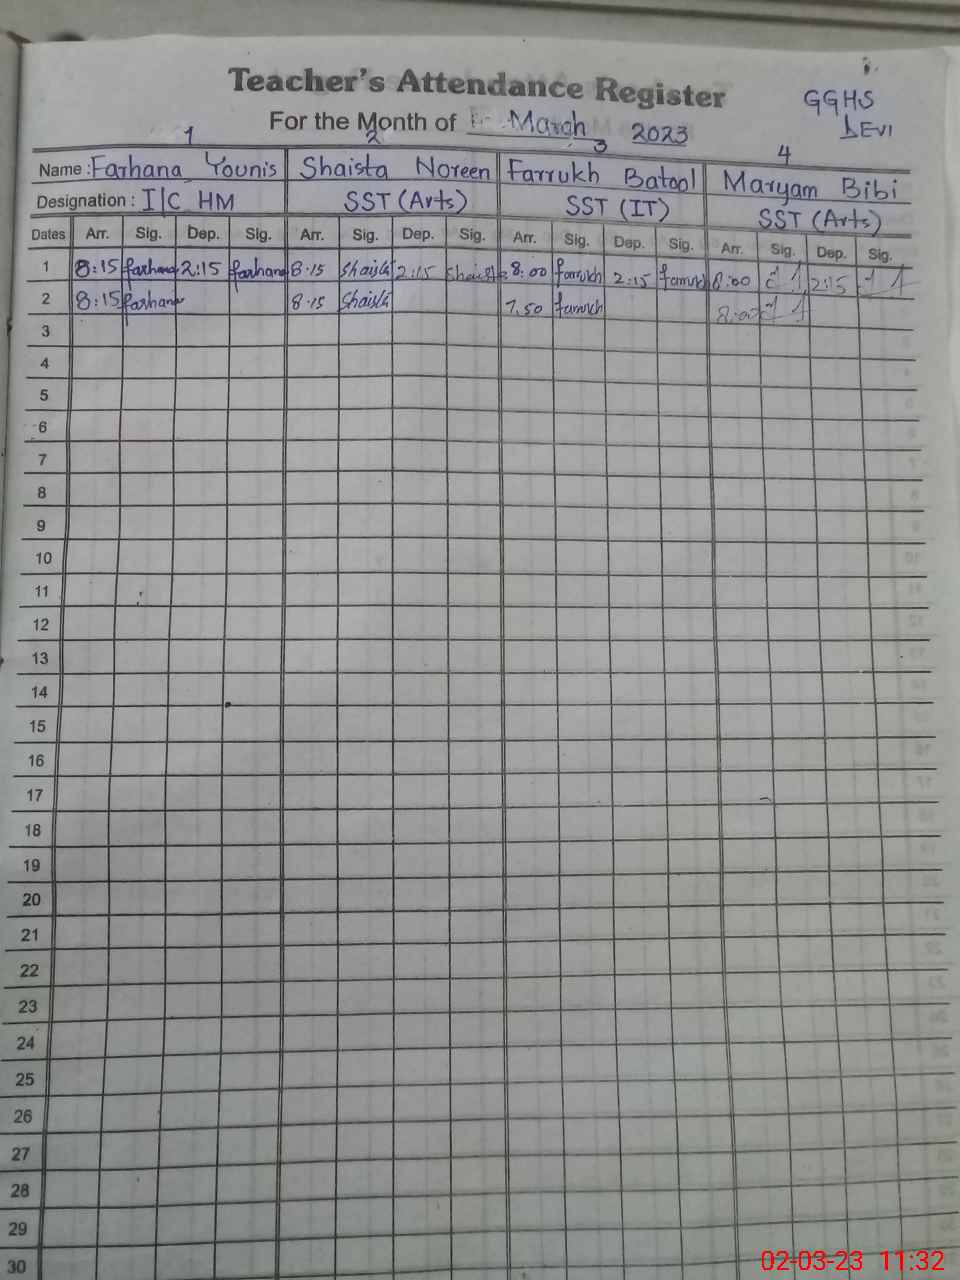 Teacher's Attendance Register
GGHS
DEVI
For the Month of March 2023
1 2 3 4
Name: Farhana Younis Shaista Noreen Farrukh Batool Maryam Bibi
Designation: I/C HM SST (Arts) SST (IT) SST (Arts)
Dates Arr. Sig. Dep. Sig. Arr. Sig. Dep. Sig. Arr. Sig. Dep. Sig. Arr. Sig. Dep. Sig.
1 8:15 farhana 2:15 farhana 8:15 Shaista 2:15 Shaista 8:00 farrukh 2:15 farrukh 8:00 2:15
2 8:15 farhana 8:15 Shaista 7.50 farrukh 8:00
3
4
5
6
7
8
9
10
11
12
13
14
15
16
17
18
19
20
21
22
23
24
25
26
27
28
29
30
02-03-23 11:32